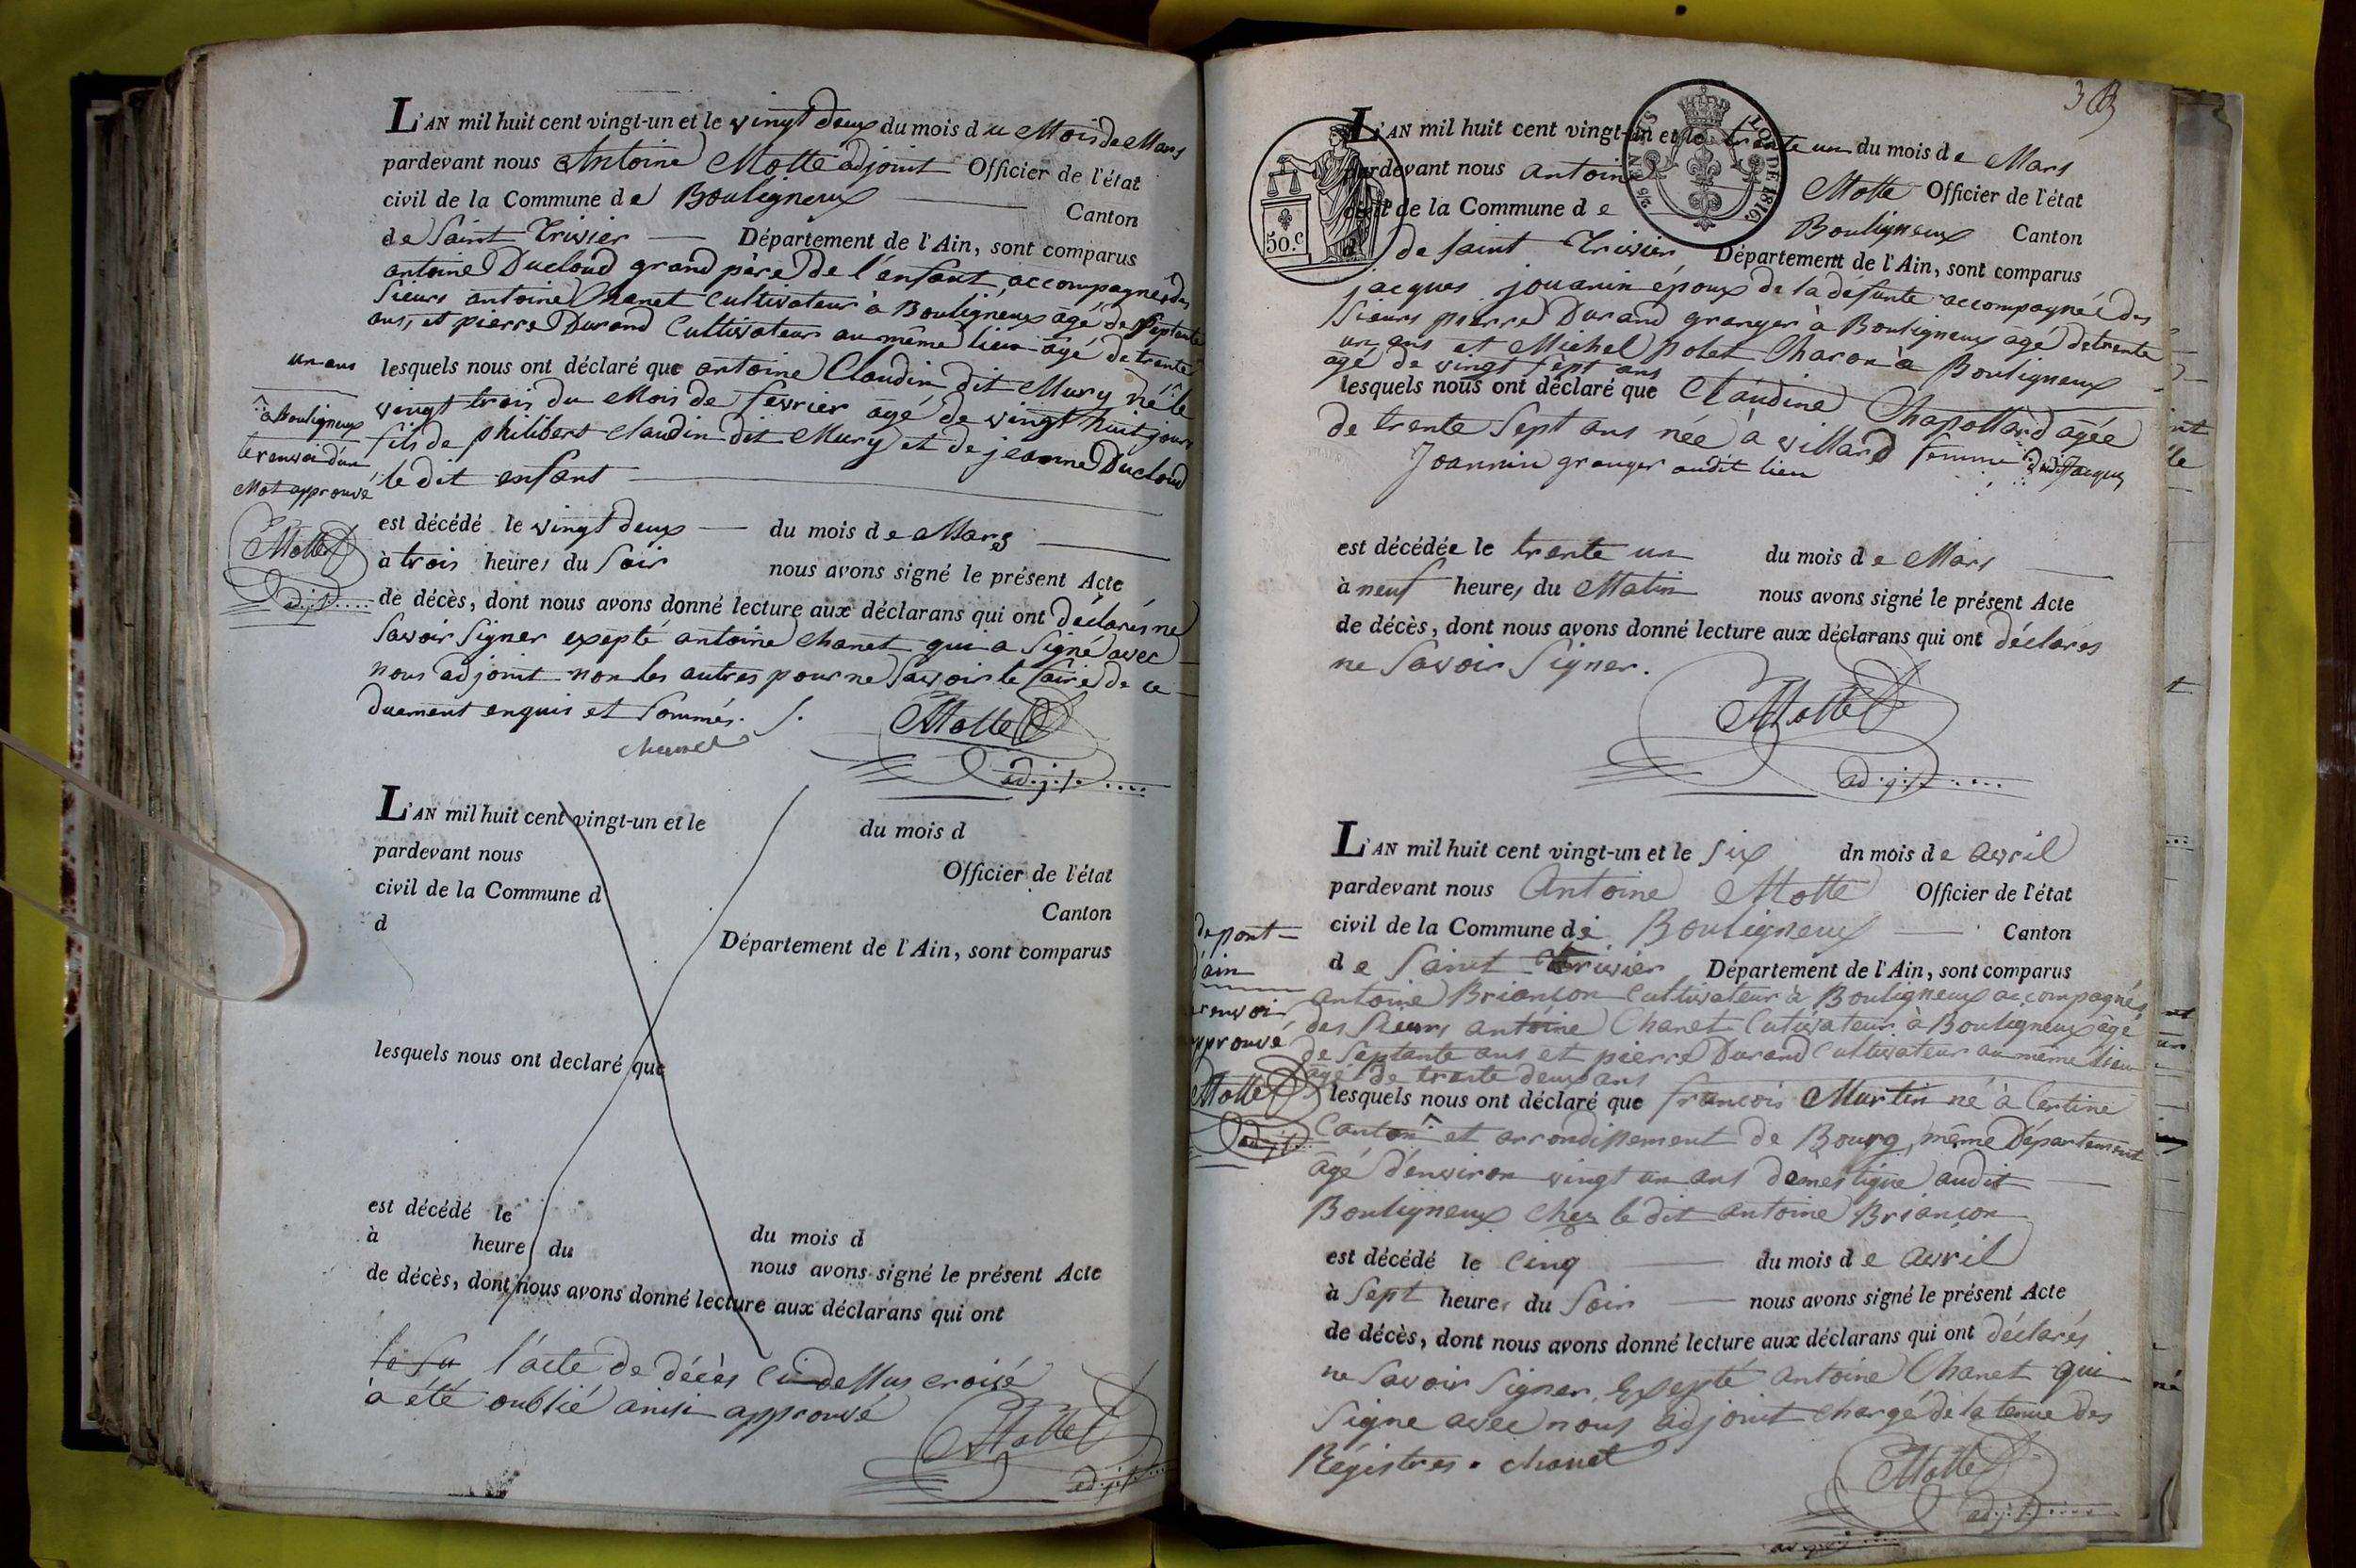 L'AN mil huit cent vingt-un et le vingt deux du mois d u Mois de Mars
pardevant nous Antoine Motte adjoint Officier de l'état
civil de la Commune de Bouligneux Canton
de Saint Trivier Département de l'Ain, sont comparus
antoine Ducloud grand père de l'enfant, accompagné des
Sieurs antoine Chanet Cultivateur à Bouligneux agé de Septante
ans, et pierre Durand Cultivateur au même lieu agé de trente
un ans lesquels nous ont déclaré que antoine Claudin dit Mury né le
vingt trois du Mois de fevrier agé de vingt huit jours
fils de philibert Claudin dit Mury et de jeanne Ducloud
le dit enfant
à Bouligneux
le renvoi d'un
Mot approuvé
Motte
adjt
est décédé le vingt deux du mois de Mars
à trois heures du Soir nous avons signé le présent Acte
de décès, dont nous avons donné lecture aux déclarans qui ont déclarés ne
Savoir Signer exepté antoine Chanet qui a Signé avec
nous adjoint non les autres pour ne Savoir le faire de ce
duement enquis et Sommés.
Chanet Motte
adjt
L'AN mil huit cent vingt-un et le du mois d
pardevant nous Officier de l'état
civil de la Commune d Canton
d Département de l'Ain, sont comparus
lesquels nous ont declaré que
est décédé le du mois d
à heure du nous avons signé le présent Acte
de décès, dont nous avons donné lecture aux déclarans qui ont
l'acte de décès Ci dessus croisé
à été oublié ainsi approuvé
Motte
adjt
TOT. DE 1816.
50.c
L'AN mil huit cent vingt-un et le trente un du mois de Mars
pardevant nous Antoine Motte Officier de l'état
civil de la Commune de Bouligneux Canton
de Saint Trivier Département de l'Ain, sont comparus
jacques jouanin époux de la défunte accompagnée des
Sieurs pierre Durand granger à Bouligneux agé de trente
un ans et Michel polet Charon à Bouligneux
agé de vingt sept ans
lesquels nous ont déclaré que Claudine Chapollard agée
de trente Sept ans née à villard femme dudit Jacques
Joannin granger audit lieu
est décédée le trente un du mois de Mars
à neuf heures du Matin nous avons signé le présent Acte
de décès, dont nous avons donné lecture aux déclarans qui ont déclarés
ne Savoir Signer.
Motte
adjt
L'AN mil huit cent vingt-un et le Six dn mois de avril
pardevant nous Antoine Motte Officier de l'état
civil de la Commune de Bouligneux Canton
de Saint Trivier Département de l'Ain, sont comparus
antoine Briançon Cultivateur à Bouligneux accompagnés
des Sieurs antoine Chanet Cutivateur à Bouligneux âgé
de Septante ans et pierre Durand Cultivateur au même lieu
âgé de trente deux ans
lesquels nous ont déclaré que françois Martin né à Certine
Canton et arrondissement de Bourg, même Département
âgé d'environ vingt un ans domestique audit
Bouligneux chez le dit antoine Briançon
de pont
d'ain
renvoi
approuvé
Motte
adjt
est décédé le Cinq du mois de avril
à Sept heures du Soir nous avons signé le présent Acte
de décès, dont nous avons donné lecture aux déclarans qui ont déclarés
ne Savoir Signer, Exepté antoine Chanet qui
Signe avec nous adjoint chargé de la tenue des
Régistres. chanet
Motte
adjt